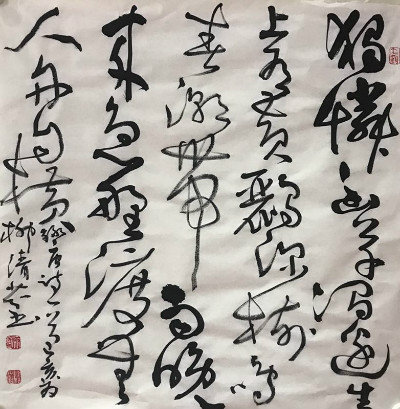 獨憐幽草澗邊生
上有黃鸝深樹鳴
春潮帶雨晚
來急野渡無
人舟自橫
唐詩一首
柳清